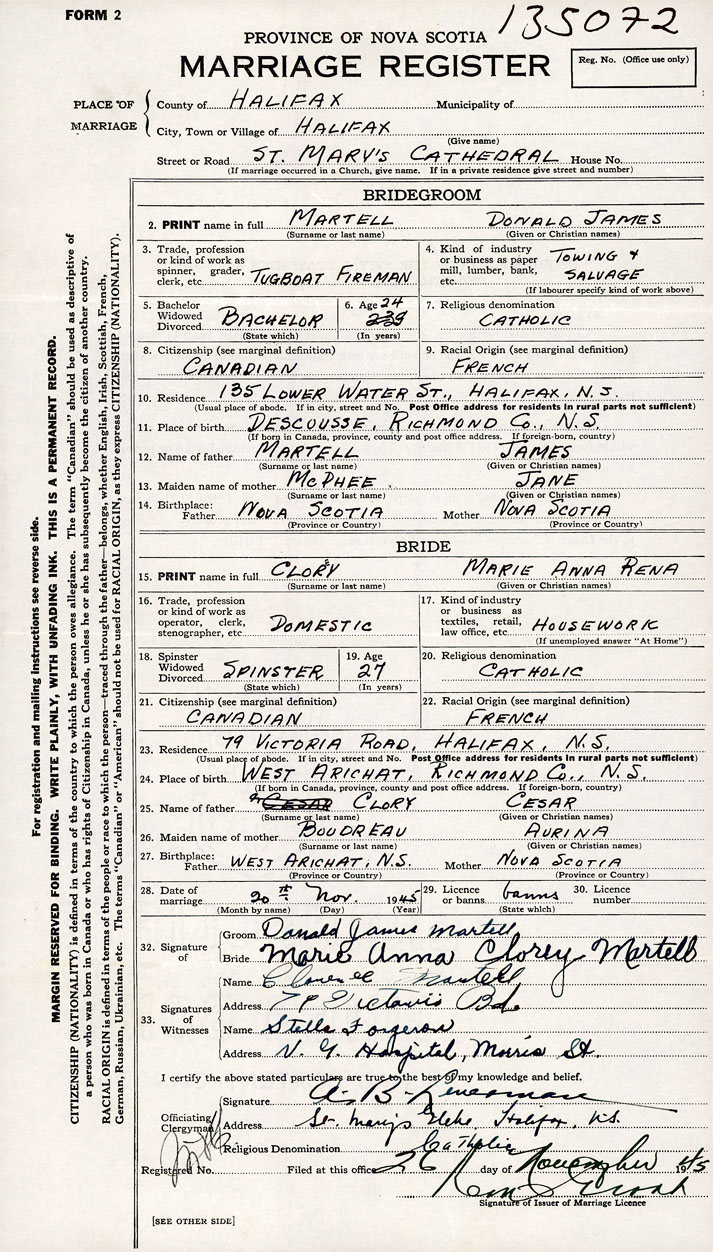 FORM 2
135072
PROVINCE OF NOVA SCOTIA
MARRIAGE REGISTER
Reg. No. (Office use only)
PLACE OF MARRIAGE
County of HALIFAX Municipality of
City, Town or Village of HALIFAX
(Give name)
Street or Road ST. MARY'S CATHEDRAL House No.
(If marriage occurred in a Church, give name. If in a private residence give street and number)
BRIDEGROOM
2. PRINT name in full MARTELL DONALD JAMES
(Surname or last name) (Given or Christian names)
3. Trade, profession or kind of work as spinner, grader, clerk, etc. TUGBOAT FIREMAN
4. Kind of industry or business as paper mill, lumber, bank, etc. TOWING & SALVAGE
(If labourer specify kind of work above)
5. Bachelor Widowed Divorced BACHELOR
(State which)
6. Age 24
(In years)
7. Religious denomination
CATHOLIC
8. Citizenship (see marginal definition)
CANADIAN
9. Racial Origin (see marginal definition)
FRENCH
10. Residence 135 LOWER WATER ST., HALIFAX, N.S.
(Usual place of abode. If in city, street and No. Post Office address for residents in rural parts not sufficient)
11. Place of birth DESCOUSSE, RICHMOND Co., N.S.
(If born in Canada, province, county and post office address. If foreign-born, country)
12. Name of father MARTELL JAMES
(Surname or last name) (Given or Christian names)
13. Maiden name of mother McPHEE JANE
(Surname or last name) (Given or Christian names)
14. Birthplace: Father NOVA SCOTIA Mother NOVA SCOTIA
(Province or Country) (Province or Country)
BRIDE
15. PRINT name in full CLORY MARIE ANNA RENA
(Surname or last name) (Given or Christian names)
16. Trade, profession or kind of work as operator, clerk, stenographer, etc DOMESTIC
17. Kind of industry or business as textiles, retail, law office, etc. HOUSEWORK
(If unemployed answer "At Home")
18. Spinster Widowed Divorced SPINSTER
(State which)
19. Age
27
(In years)
20. Religious denomination
CATHOLIC
21. Citizenship (see marginal definition)
CANADIAN
22. Racial Origin (see marginal definition)
FRENCH
23. Residence 79 VICTORIA ROAD, HALIFAX, N.S.
(Usual place of abode. If in city, street and No. Post Office address for residents in rural parts not sufficient)
24. Place of birth WEST ARICHAT, RICHMOND Co., N.S.
(If born in Canada, province, county and post office address. If foreign-born, country)
25. Name of father CESAR CLORY CESAR
(Surname or last name) (Given or Christian names)
26. Maiden name of mother BOUDREAU AURINA
(Surname or last name) (Given or Christian names)
27. Birthplace: Father WEST ARICHAT, N.S. Mother NOVA SCOTIA
(Province or Country) (Province or Country)
28. Date of marriage 20th Nov. 1945
(Month by name) (Day) (Year)
29. Licence or banns banns
(State which)
30. Licence number
32. Signature of
Groom Donald James Martell
Bride Marie Anna Clorey Martell
33. Signatures of Witnesses
Name Martell
Address 79 Victoria Rd.
Name Stella Forgeron
Address V. G. Hospital, Morris St.
I certify the above stated particulars are true to the best of my knowledge and belief.
Officiating Clergyman
Signature A. B.
Address St. Mary's Halifax, N.S.
Religious Denomination Catholic
Registered No. Filed at this office 26 day of November 1945
Signature of Issuer of Marriage Licence
[SEE OTHER SIDE]
For registration and mailing instructions see reverse side.
MARGIN RESERVED FOR BINDING. WRITE PLAINLY, WITH UNFADING INK. THIS IS A PERMANENT RECORD.
CITIZENSHIP (NATIONALITY) is defined in terms of the country to which the person owes allegiance. The term "Canadian" should be used as descriptive of
a person who was born in Canada or who has rights of Citizenship in Canada, unless he or she has subsequently become the citizen of another country.
RACIAL ORIGIN is defined in terms of the people or race to which the person—traced through the father—belongs, whether English, Irish, Scottish, French,
German, Russian, Ukrainian, etc. The terms "Canadian" or "American" should not be used for RACIAL ORIGIN, as they express CITIZENSHIP (NATIONALITY).